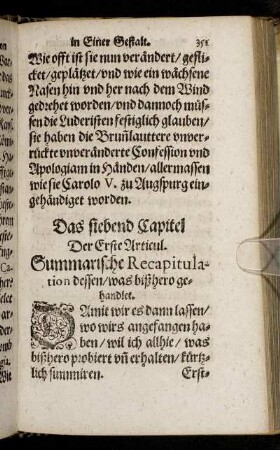 in Einer Gestalt. 351
Wie offt ist sie nun verändert/ gefli-
cket/ geplätzet/ vnd wie ein wächsene
Nasen hin vnd her nach dem Wind
gedrehet worden/ vnd dannoch müs-
sen die Luderisten festiglich glauben/
sie haben die Bruñlauttere vnver-
rückte vnveränderte Confession vnd
Apologiam in Händen/ allermassen
wie sie Carolo V. zu Augspurg ein-
gehändiget worden.
Das siebend Capitel
Der Erste Articul.
Summarische Recapitula-
tion dessen/ was bißhero ge-
handlet.
DAmit wir es dann lassen/
wo wirs angefangen ha-
ben/ wil ich allhie/ was
bißhero probiert vñ erhalten/ kürtz-
lich summiren. Erst-